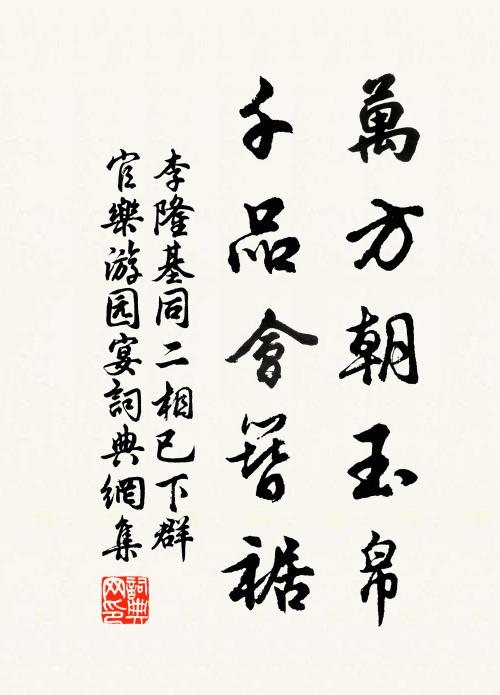 萬方朝玉帛
千品會簪裾
李隆基同二相已下群
官樂游园宴詞典網集
詞典
网印